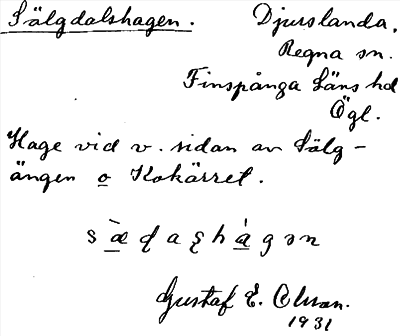 Sälgdalshagen. Djurslanda,
Regna sn.
Finspånga Läns hd
Ögl.
Hage vid v. sidan av Sälg-
ängen o Kokärret.
Gustaf E. Olsson.
1931